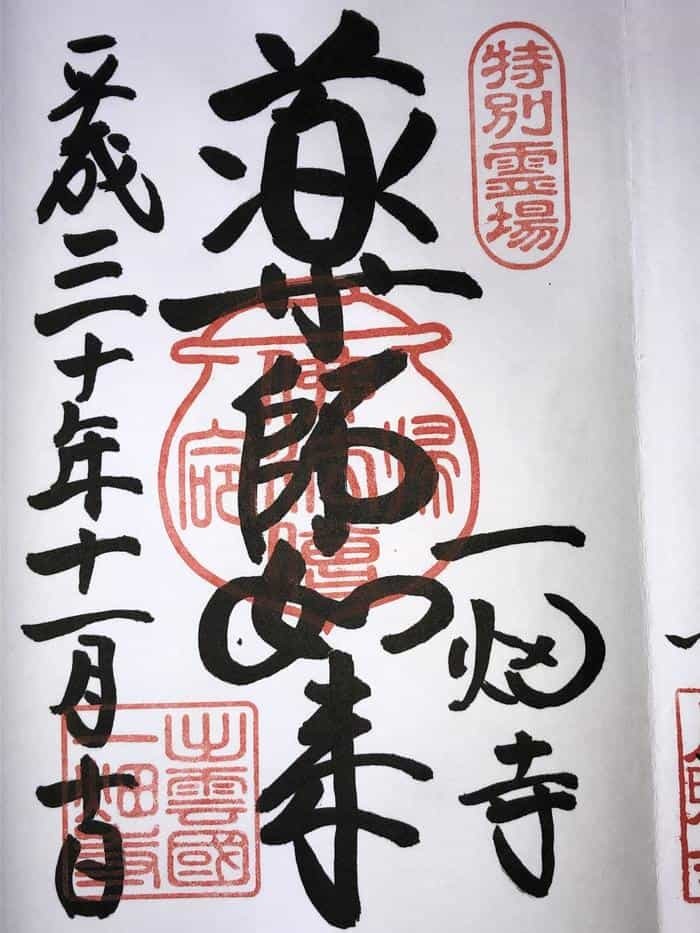 特別霊場
一畑寺
薬師如来
平成三十年十一月
出雲國
一畑寺